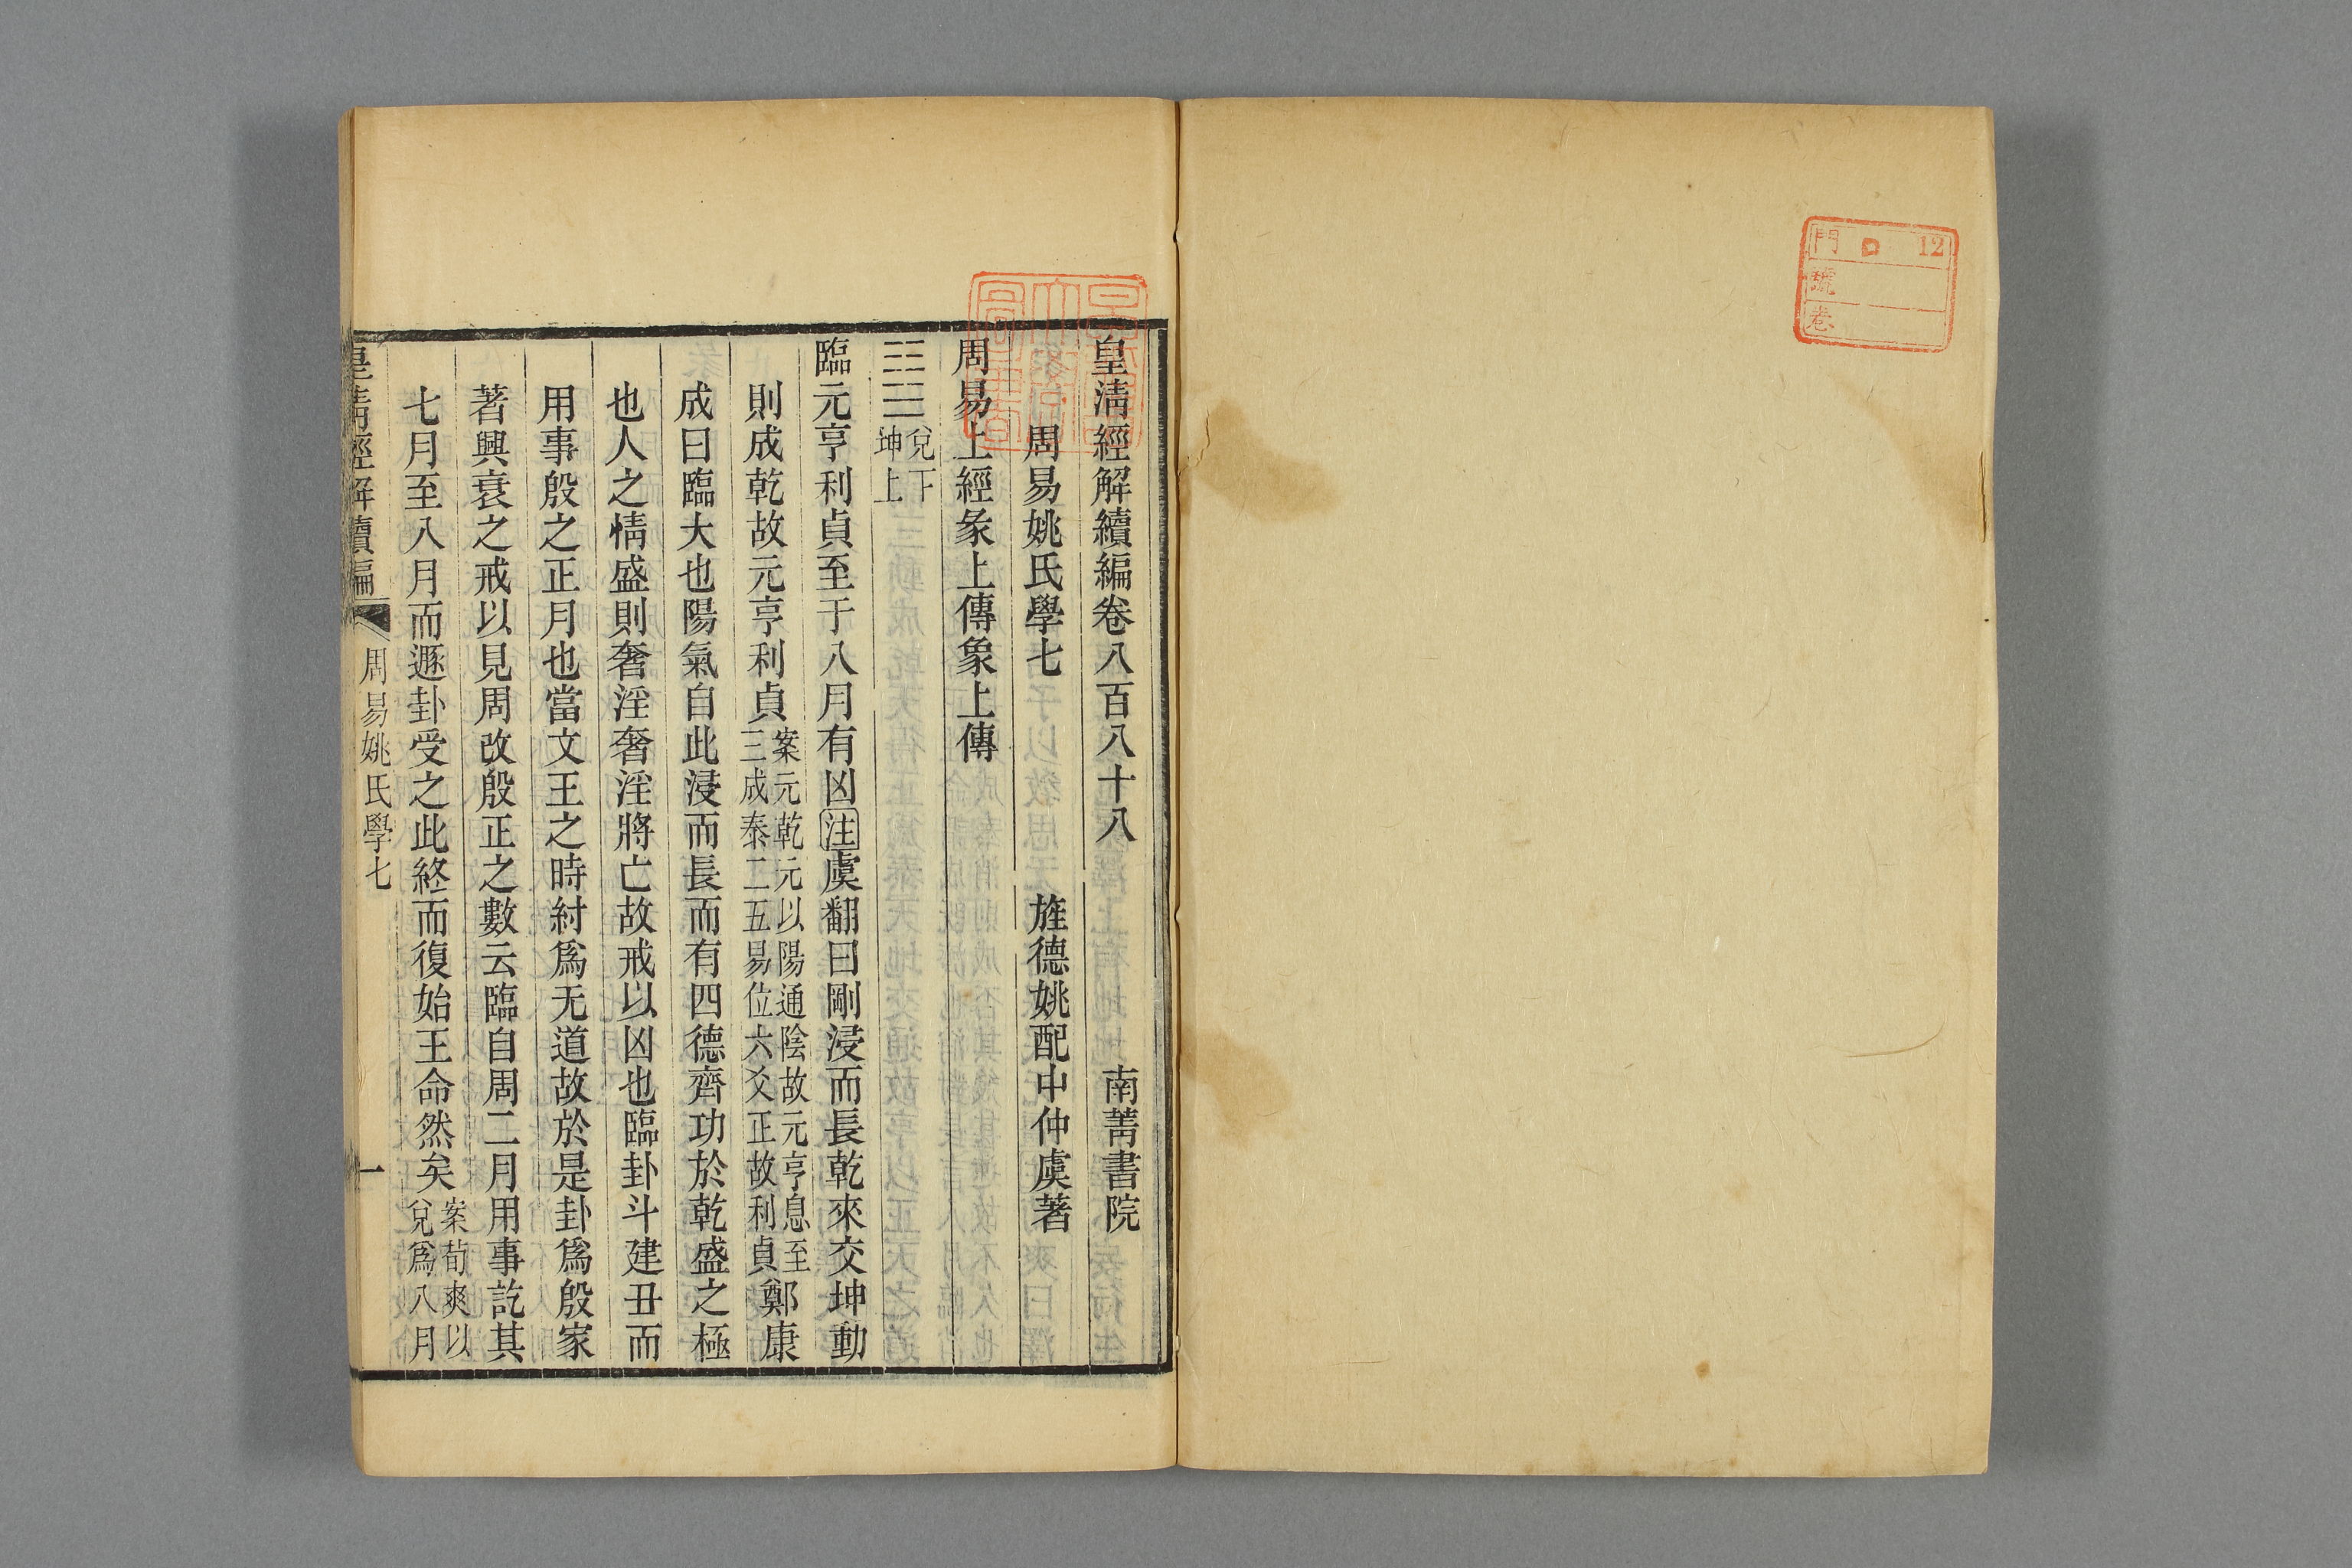 12
門
號
卷
皇清經解續編卷八百八十八 南菁書院
周易姚氏學七 旌德姚配中仲虞著
周易上經彖上傳象上傳
兌下
坤上
臨元亨利貞至于八月有凶注虞翻曰剛浸而長乾來交坤動
則成乾故元亨利貞案元乾元以陽通陰故元亨息至三成泰二五易位六爻正故利貞鄭康
成曰臨大也陽氣自此浸而長而有四德齊功於乾盛之極
也人之情盛則奢淫奢淫將亡故戒以凶也臨卦斗建丑而
用事殷之正月也當文王之時紂爲无道故於是卦爲殷家
著興衰之戒以見周改殷正之數云臨自周二月用事訖其
七月至八月而遯卦受之此終而復始王命然矣案荀爽以兌爲八月
皇清經解續編 周易姚氏學七 一